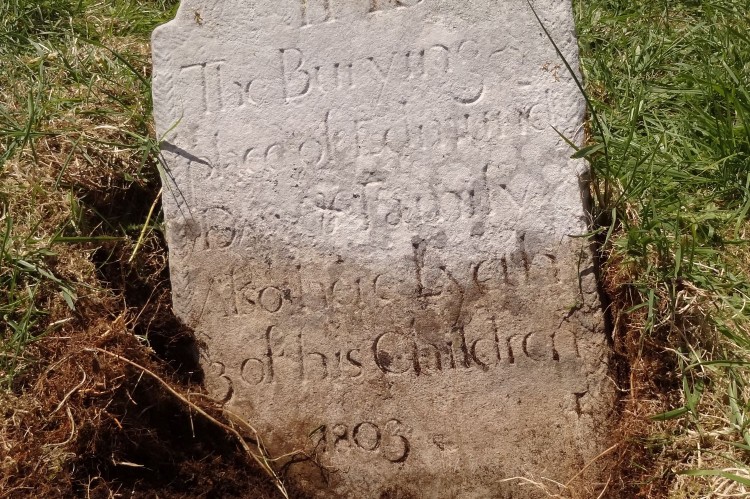 IHS
The Burying
place of Edmund
& Family
Also here Lyeth
3 of his Children
1803